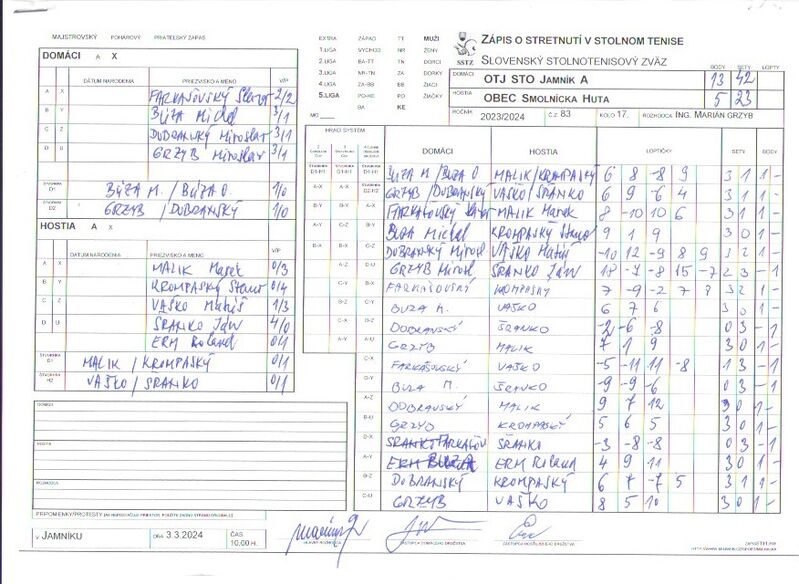 MAJSTROVSKÝ POHÁROVÝ PRIATEĽSKÝ ZÁPAS
DOMÁCI A X
DÁTUM NARODENIA PRIEZVISKO A MENO V/P
A X FARKAŠOVSKÝ Slavo 2/2
B Y BÚZA Michal 3/1
C Z DOBRANSKÝ Miroslav 3/1
D U GRZYB Miroslav 3/1
ŠTVORHRA D1 BÚZA M. / BÚZA O 1/0
ŠTVORHRA D2 GRZYB / DOBRANSKÝ 1/0
HOSTIA A X
DÁTUM NARODENIA PRIEZVISKO A MENO V/P
A X MALIK Marek 0/3
B Y KROMPASKÝ Stano 0/4
C Z VAŠKO Matúš 1/3
D U ŠRANKO Ján 4/0
ERM Roland 0/1
ŠTVORHRA H1 MALIK / KROMPASKÝ 0/1
ŠTVORHRA H2 VAŠKO / ŠRANKO 0/1
DOMÁCI
HOSTIA
ROZHODCA
PRIPOMIENKY/PROTESTY
V JAMNÍKU DŇA 3.3.2024 ČAS 10,00 H.
EXTRA ZÁPAD TT MUŽI
1.LIGA VÝCHOD NR ŽENY
2.LIGA BA-TT TN DORCI
3.LIGA NR-TN ZA DORKY
4.LIGA ZA-BB BB ŽIACI
5.LIGA PO-KE PO ŽIAČKY
MO BA KE
SSTZ
ZÁPIS O STRETNUTÍ V STOLNOM TENISE
SLOVENSKÝ STOLNOTENISOVÝ ZVÄZ
BODY SETY LOPTY
DOMÁCI OTJ STO JAMNÍK A 13 42
HOSTIA OBEC SMOLNÍCKA HUTA 5 23
ROČNÍK 2023/2024 Č.Z 83 KOLO 17. ROZHODCA ING. MARIÁN GRZYB
HRACÍ SYSTÉM
DOMÁCI HOSTIA LOPTIČKY SETY BODY
BÚZA M / BÚZA O MALIK / KROMPASKÝ 6 8 -8 9 3 1 1 -
GRZYB / DOBRANSKÝ VAŠKO / ŠRANKO 6 9 -6 4 3 1 1 -
FARKAŠOVSKÝ Slavo MALIK Marek 8 -10 10 6 3 1 1 -
BÚZA Michal KROMPASKÝ Stano 9 1 9 3 0 1 -
DOBRANSKÝ Mirosl VAŠKO Matúš -10 12 -9 8 9 3 2 1 -
GRZYB Mirosl ŠRANKO Ján 18 -7 -8 15 -7 2 3 - 1
FARKAŠOVSKÝ KOMPASKÝ 7 -9 -2 7 8 3 2 1 -
BUZA M. VAŠKO 6 7 6 3 0 1 -
DOBRANSKÝ ŠRANKO -2 -6 -8 0 3 - 1
GRZYB MALIK 7 1 9 3 0 1 -
FARKAŠOVSKÝ VAŠKO -5 -11 11 -8 1 3 - 1
BUZA M. ŠRANKO -9 -9 -6 0 3 - 1
DOBRANSKÝ MALIK 9 7 12 3 0 1 -
GRZYB KROMPASKÝ 5 6 5 3 0 1 -
FARKAŠOV ŠRANKO -3 -8 -8 0 3 - 1
ERM Roland 4 9 11 3 0 1 -
DOBRANSKÝ KROMPASKÝ 6 -7 -7 5 3 1 1 -
GRZYB VAŠKO 8 5 10 3 0 1 -